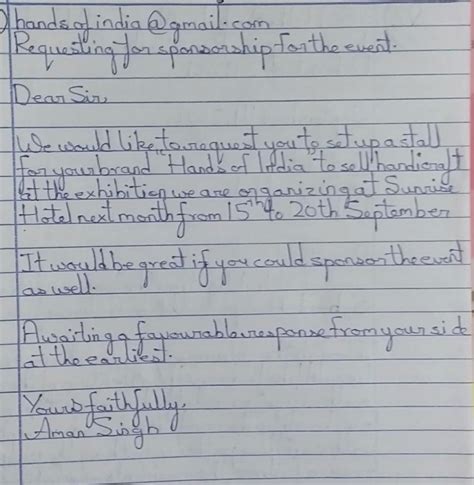 handsofindia@gmail.com
Requesting for sponsorship for the event.
Dear Sir,
We would like to request you to set up a stall
for your brand "Hands of India" to sell handicraft
at the exhibition we are organizing at Sunrise
Hotel next month from 15th to 20th September
It would be great if you could sponsor the event
as well.
Awaiting a favourable response from your side
at the earliest.
Yours faithfully,
Aman Singh